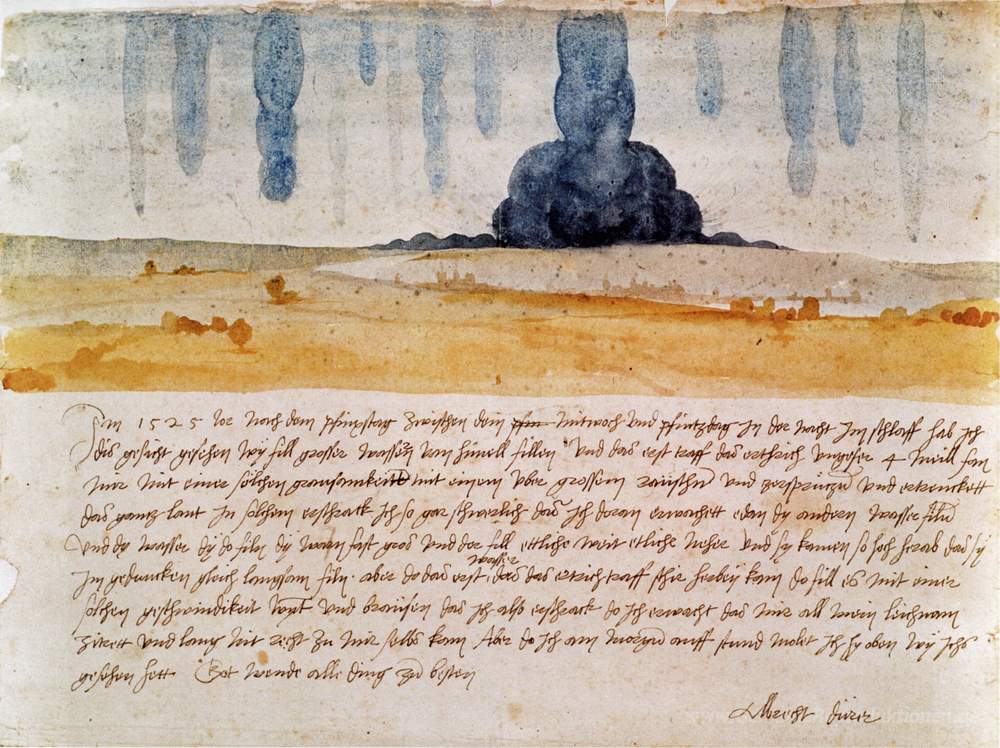 Im 1525 Jor noch dem pfinxstag zwischen dem pfin mitwoch und pfintzdag in der nacht im schlaff hab ich
dis gesicht gesehen wy fill grosser wassern vom himell fillen Und das erst traff das erthrich ungefer 4 meill fan
mir mit einer solchen grausamkeitt mit einem uber grossem raüschn und zersprützn und ertrenckett
das gannz lant In solchem erschrack ich so gar schwerlich das ich doran erwachett edan dy andern wasser filn
Und dy wasser dy do filn dy warn fast gros und der fill ettliche weit etliche neher und sy kamen so hoch herab das sy
im gedancken gleich langsam filn aber do das erst wasser das das ertrich traff schir herbey kam do fill es mit einer
solchen geschwindikeit wynt und braüsen das ich also erschrack do ich erwacht das mir all mein leichnam
zitrett und lang nit recht zu mir selbs kam Aber do ich am morgn auff stund molet ich hy oben wy ichs
gesehen hett Got wende alle ding zu besten
Albrecht dürer